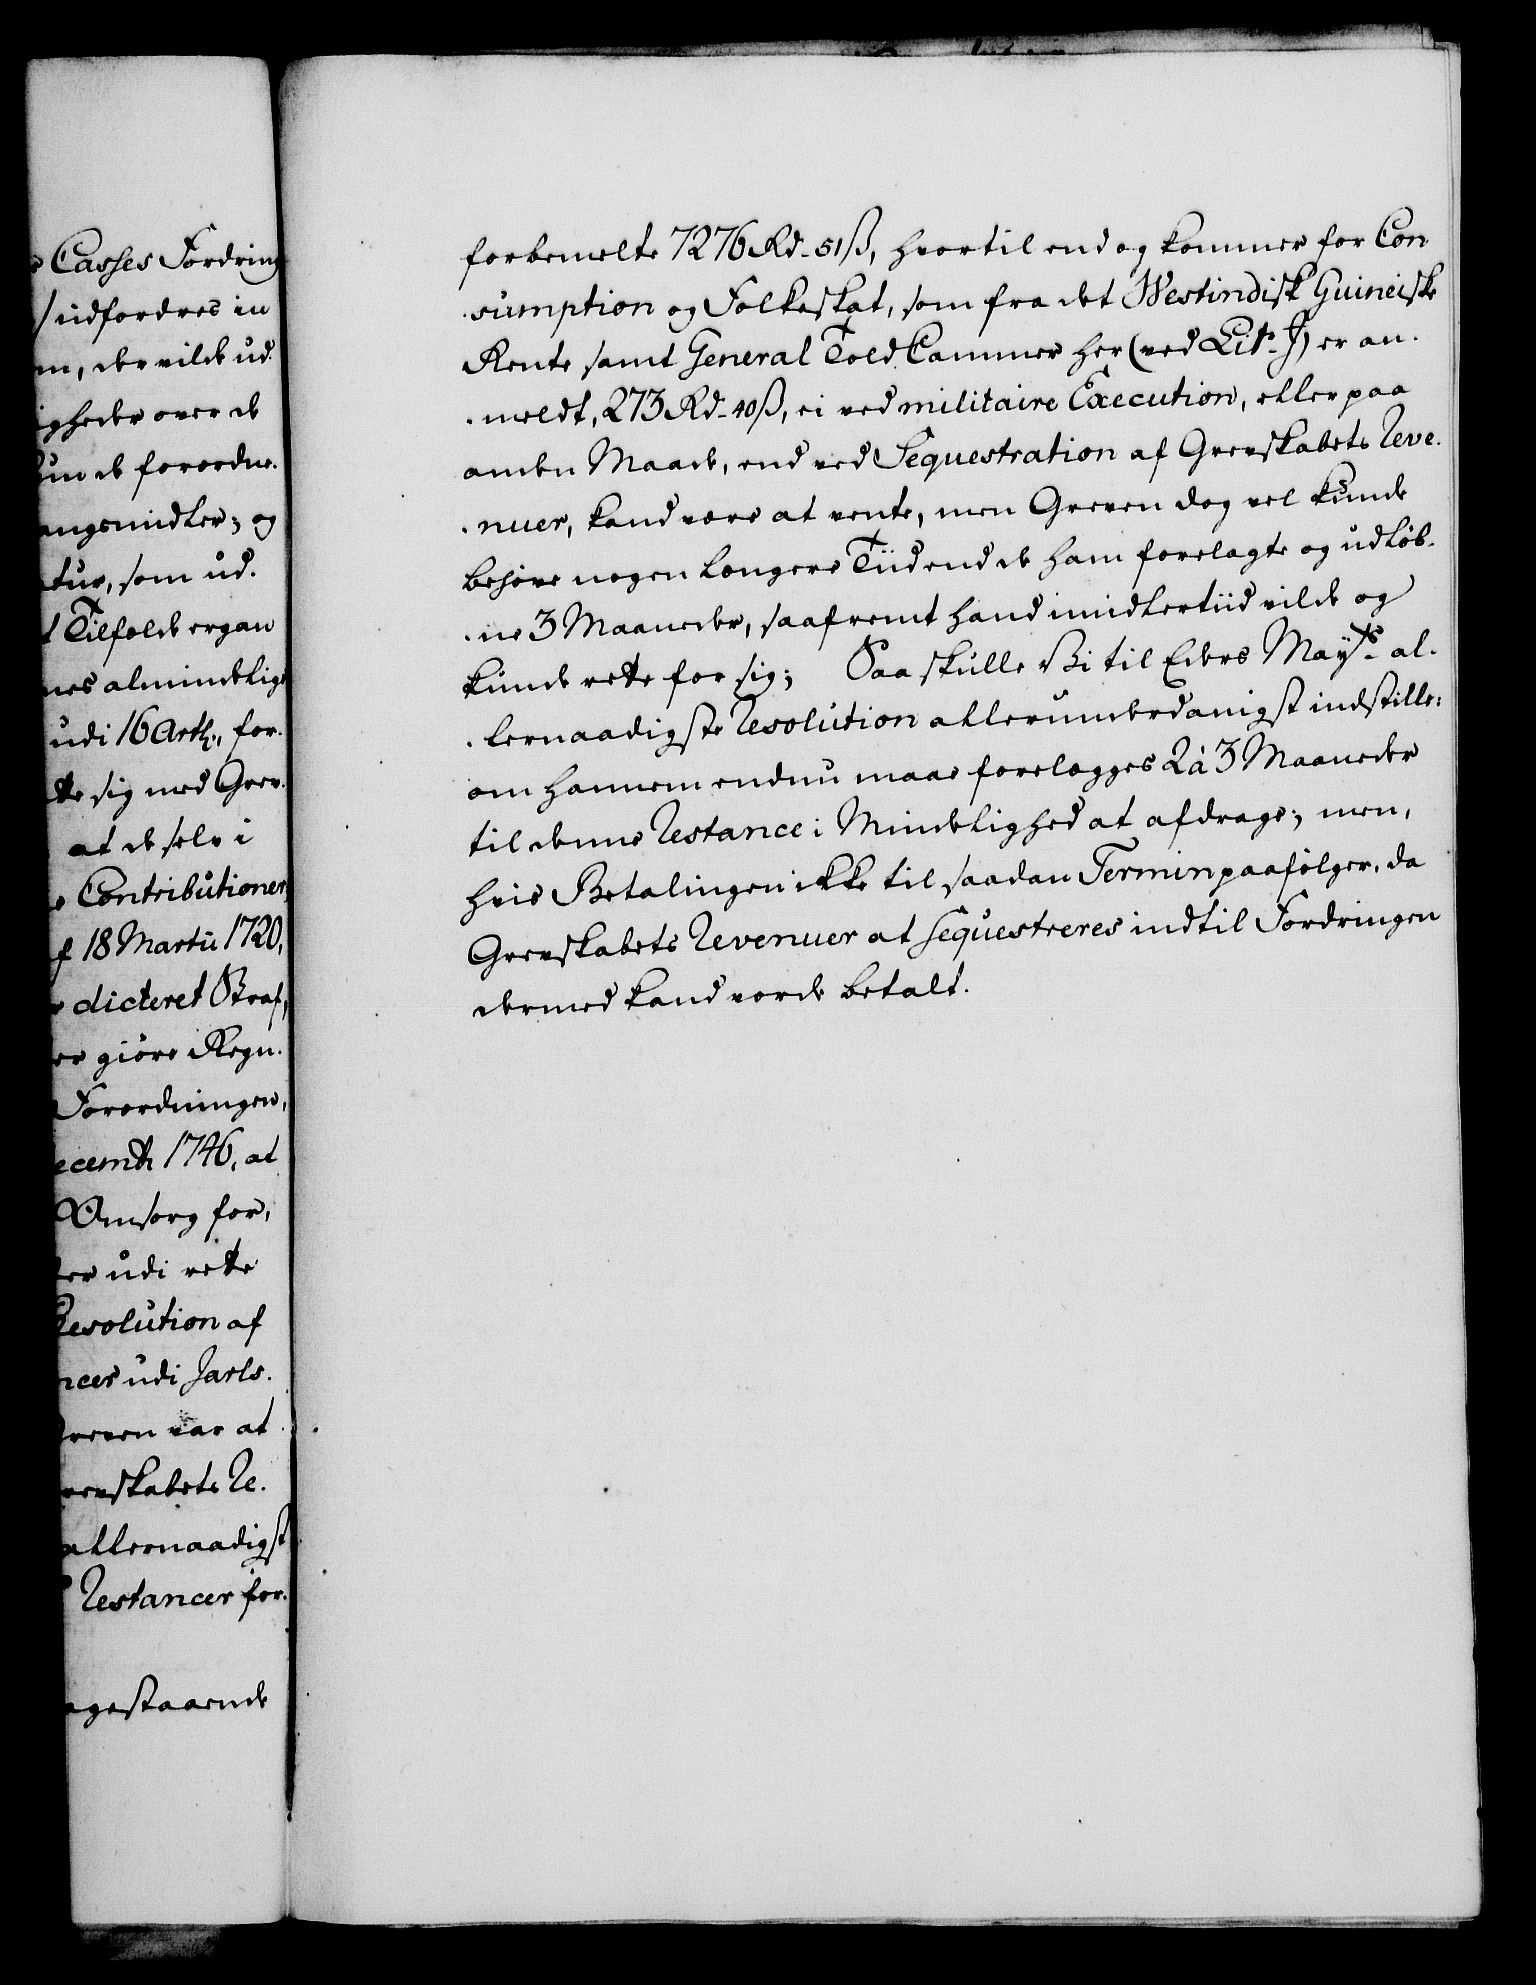 Casses Fordring
udfordres in
der vilde ud-
over de
de forordne-
og
som ud-
Tilfelde ergan
almindelige
udi 16 Artl:, for-
sig med Grev-
at de selv i
Contributioner
18 Martii 1720,
dicteret Straf,
giöre Regn-
Forordningen,
1746, at
Omsorg for,
udi rette
Resolution af
udi Jarls-
var at
Re-
allernaadigst
Restancer for-
forbemelte 7276 Rd. 51 ß, hvortil end og kommer for Con
-sumption og Folkeskat, som fra det Westindisk Guineiske
Rente samt General Told Cammer her (ved Litr. J) er an-
-meldt, 273 Rd. 40 ß, ei ved militaire Execution, eller paa
anden Maade, end ved Sequestration af Grevskabets Reve-
-nuer, kand være at vente, men Greven dog vel kunde
behöve nogen længere Tiid end de ham forelagte og udlöb-
-ne 3 Maaneder, saafremt hand imidlertiid vilde og
kunde rette for sig; Saa skulle Vi til Eders Mayts. al-
-lernaadigste Resolution allerunderdanigst indstille:
om hannem endnu maae forelægges 2 à 3 Maaneder
til denne Restance i Mindelighed at afdrage; men,
hvis Betalingen ikke til saadan Termin paafölger, da
Grevskabets Revenuer at sequestreres indtil Fordringen
dermed kand vorde betalt.